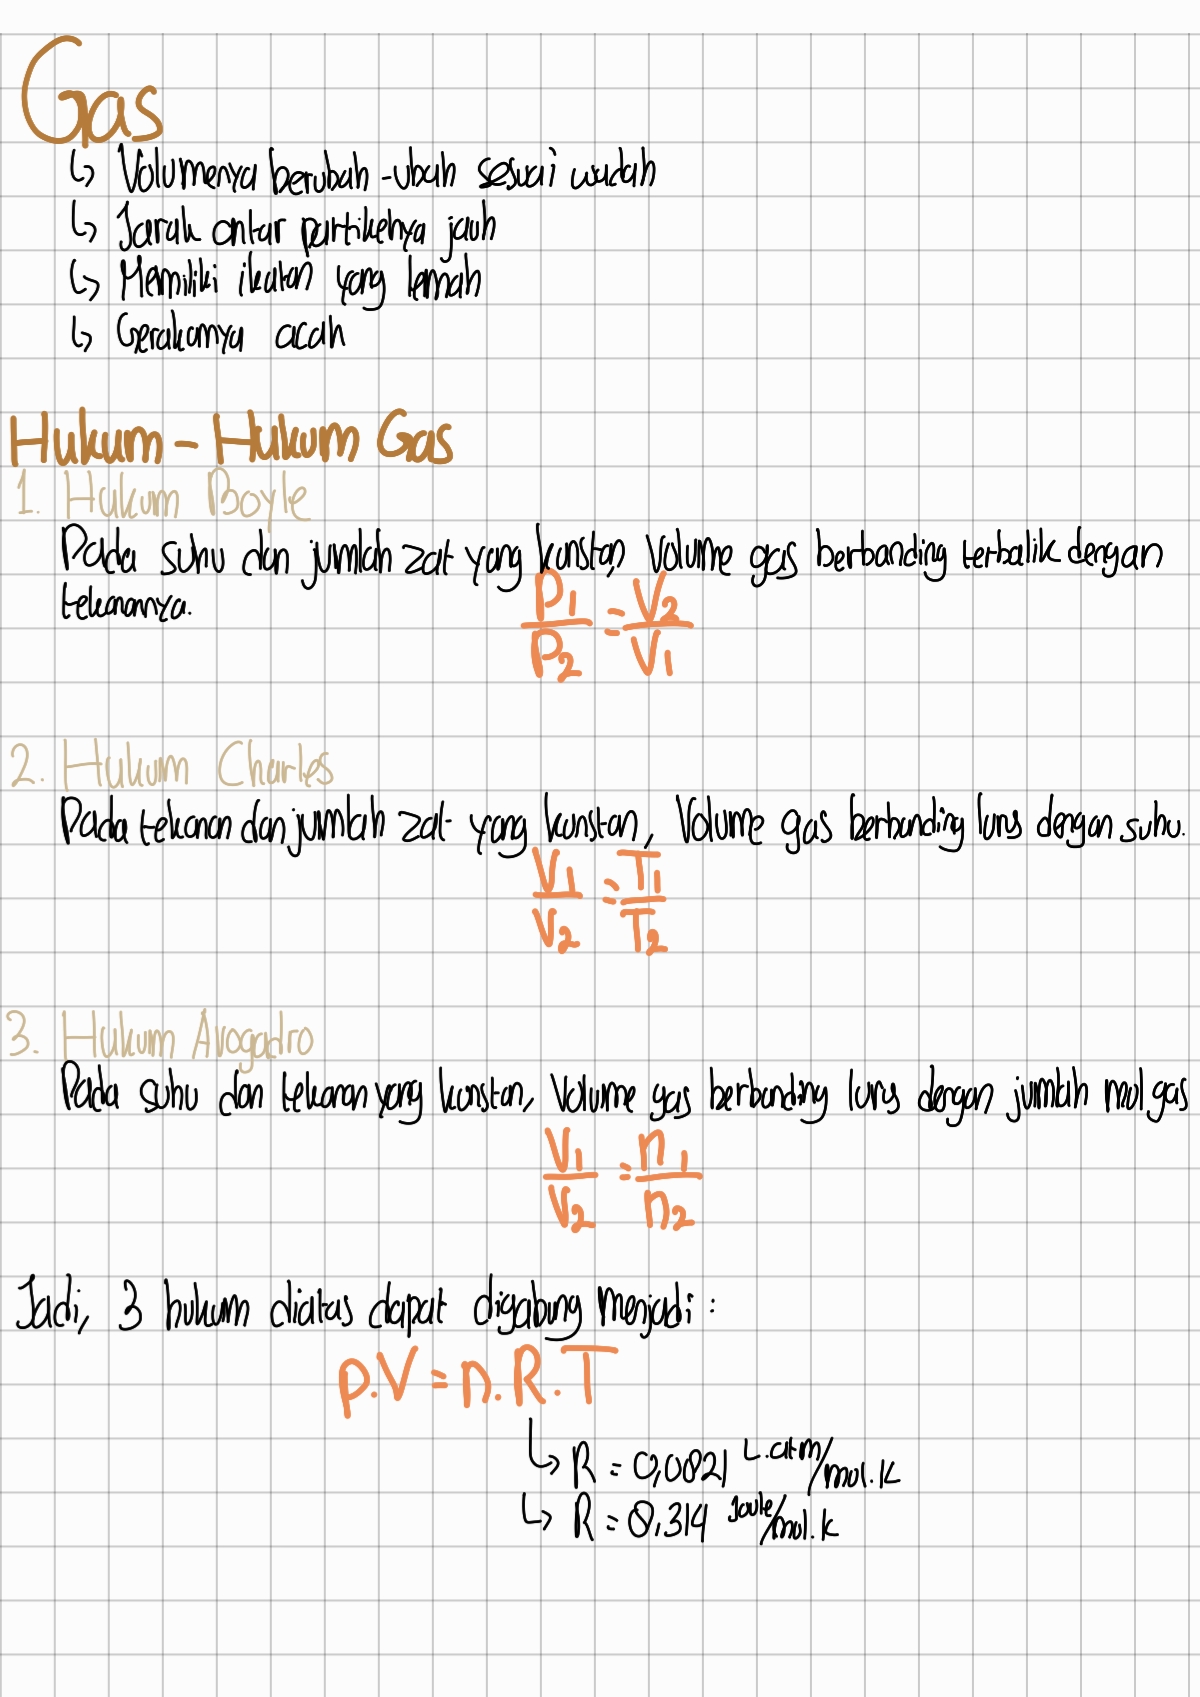 Gas
↳ Volumenya berubah-ubah sesuai wadah
↳ Jarak antar partikelnya jauh
↳ Memiliki ikatan yang lemah
↳ Gerakannya acak
Hukum - Hukum Gas
1. Hukum Boyle
Pada suhu dan jumlah zat yang konstan, Volume gas berbanding terbalik dengan
tekanannya.
P1/P2 = V2/V1
2. Hukum Charles
Pada tekanan dan jumlah zat yang konstan, Volume gas berbanding lurus dengan suhu.
V1/V2 = T1/T2
3. Hukum Avogadro
Pada suhu dan tekanan yang konstan, Volume gas berbanding lurus dengan jumlah mol gas
V1/V2 = n1/n2
Jadi, 3 hukum diatas dapat digabung menjadi :
P.V = n.R.T
↳ R = 0,0821 L.atm/mol.K
↳ R = 8,314 Joule/mol.K